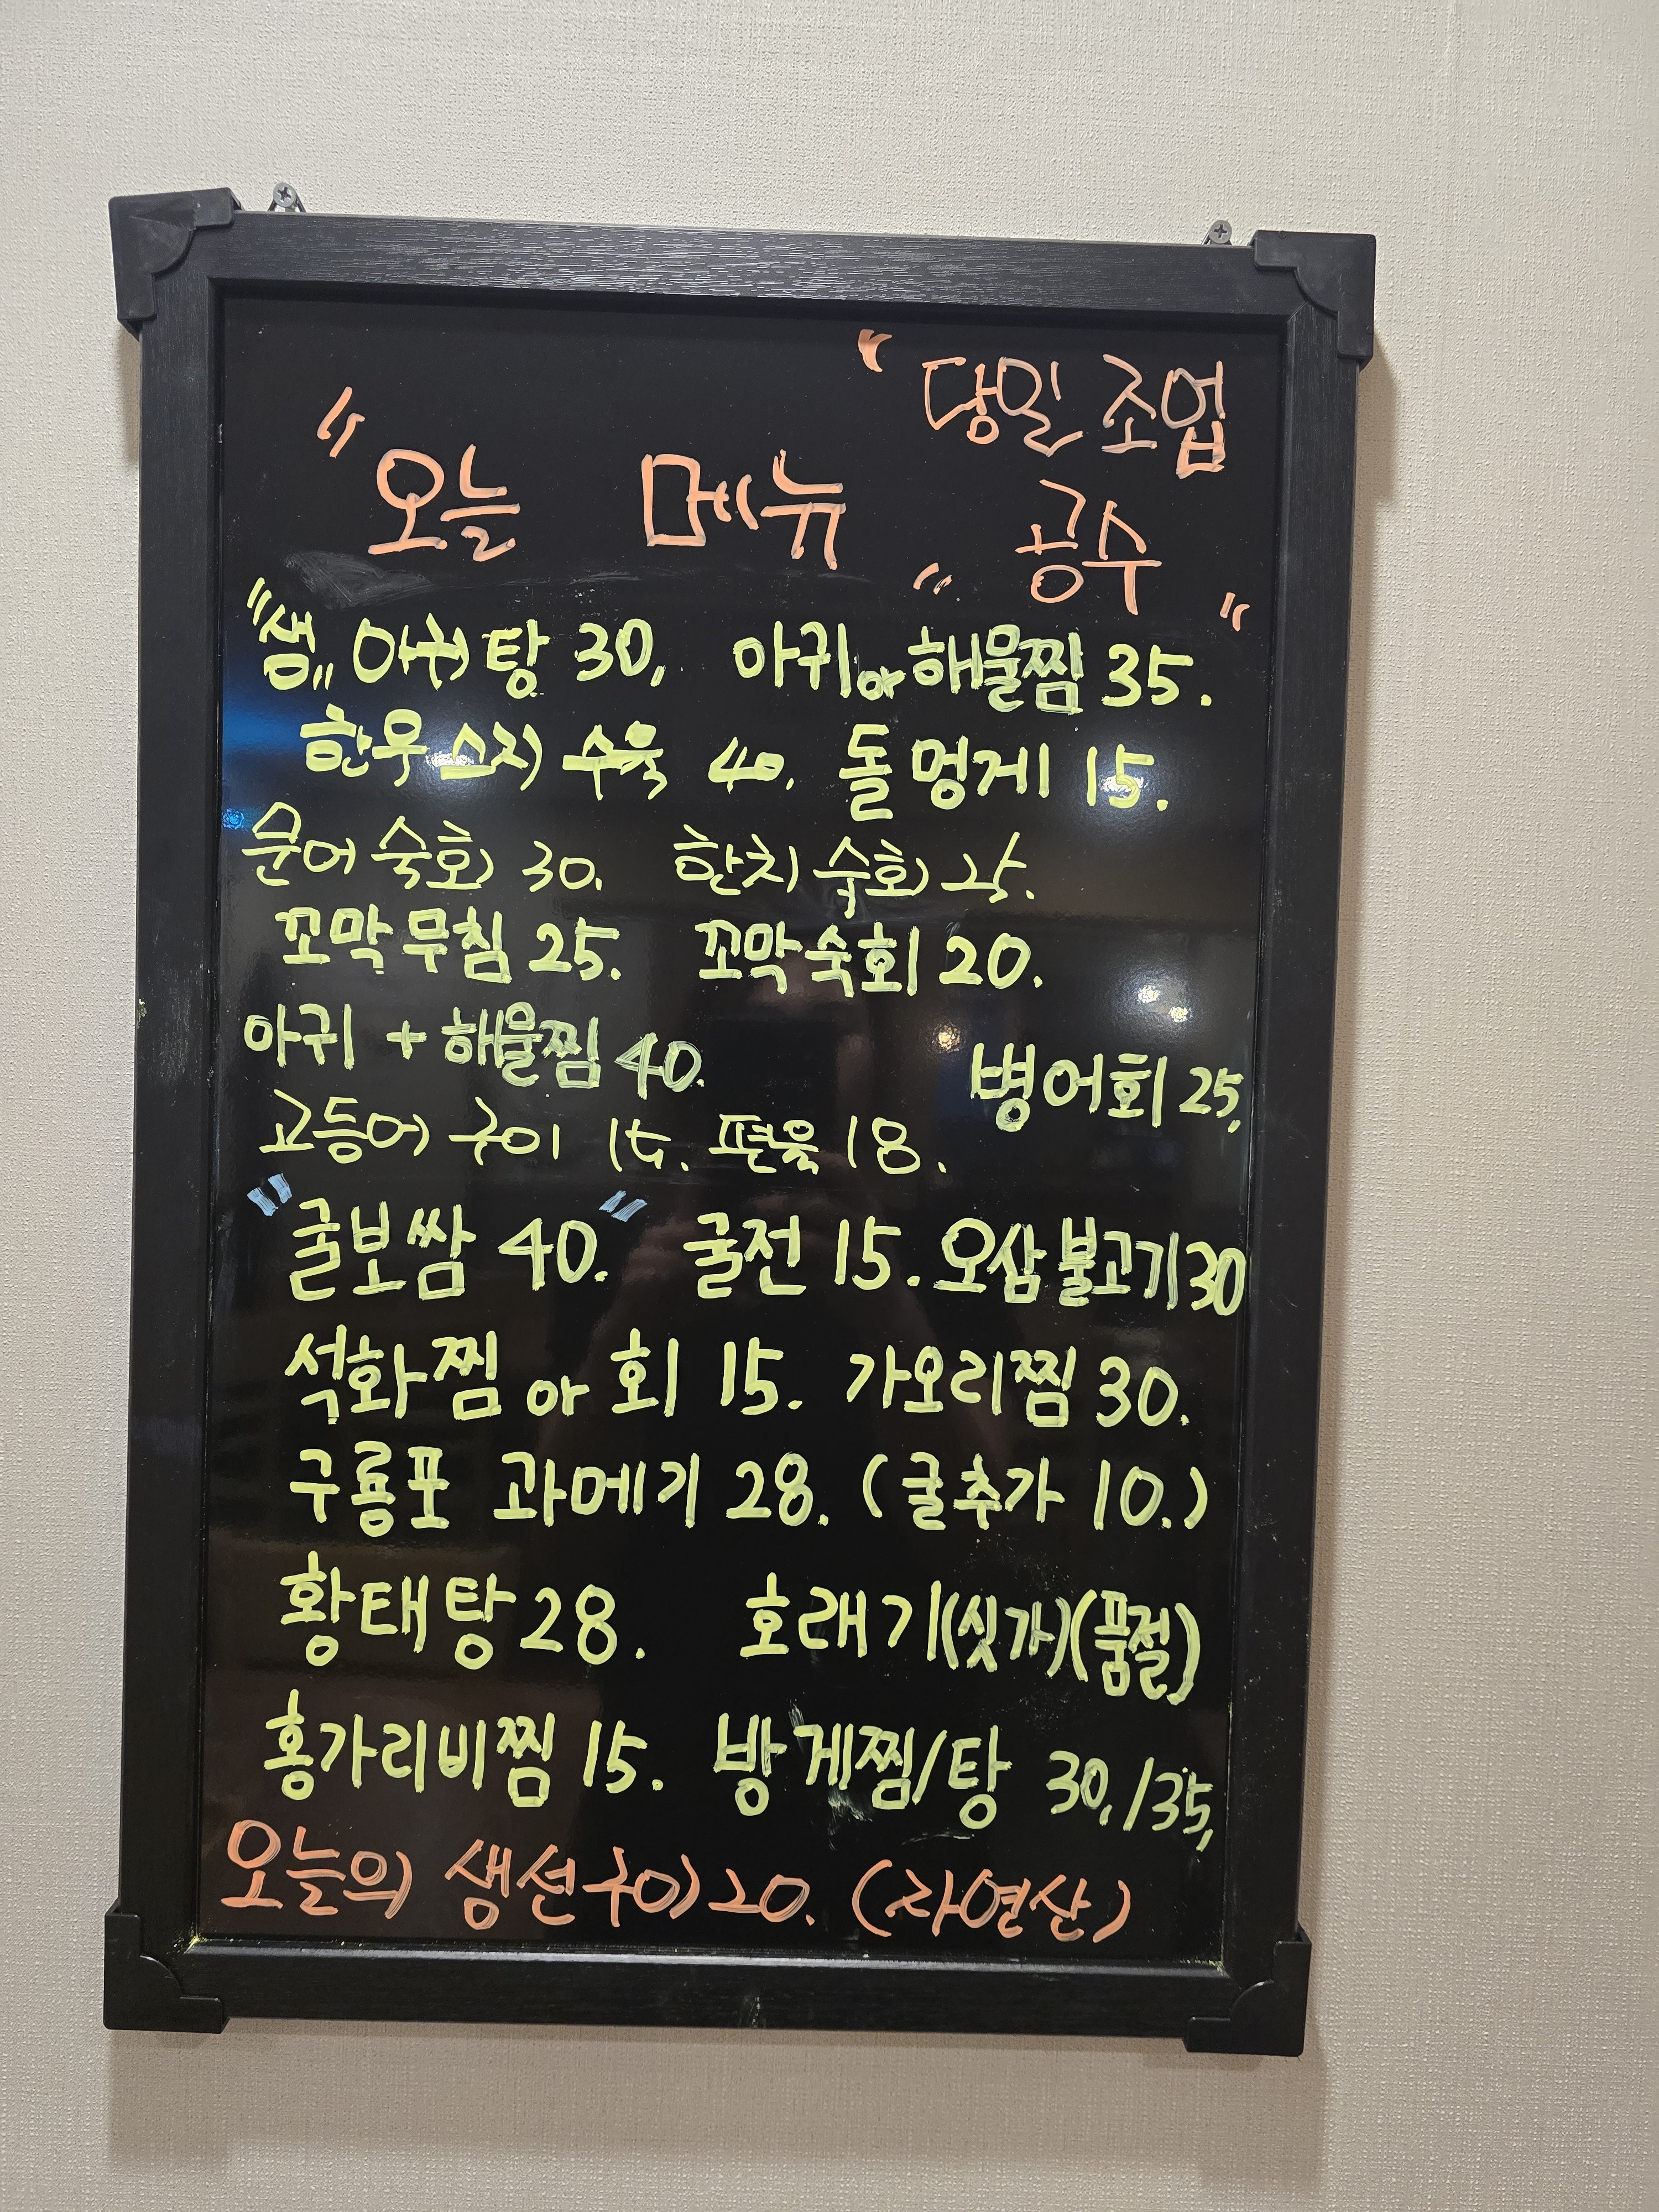 "당일 조업
"오늘 메뉴" 공수"
"생" 아귀탕 30, 아귀or해물찜 35.
한우소지 수육 40. 돌멍게 15.
문어숙회 30. 한치숙회 25.
꼬막무침 25. 꼬막숙회 20.
아귀 + 해물찜 40.
병어회 25,
고등어 구이 15. 편육 18.
"굴보쌈 40." 굴전 15. 오삼불고기 30
석화찜 or 회 15. 가오리찜 30.
구룡포 과메기 28. (굴추가 10.)
황태탕 28. 호래기(싯가)(품절)
홍가리비찜 15. 방게찜/탕 30,/35,
오늘의 생선구이 20. (자연산)